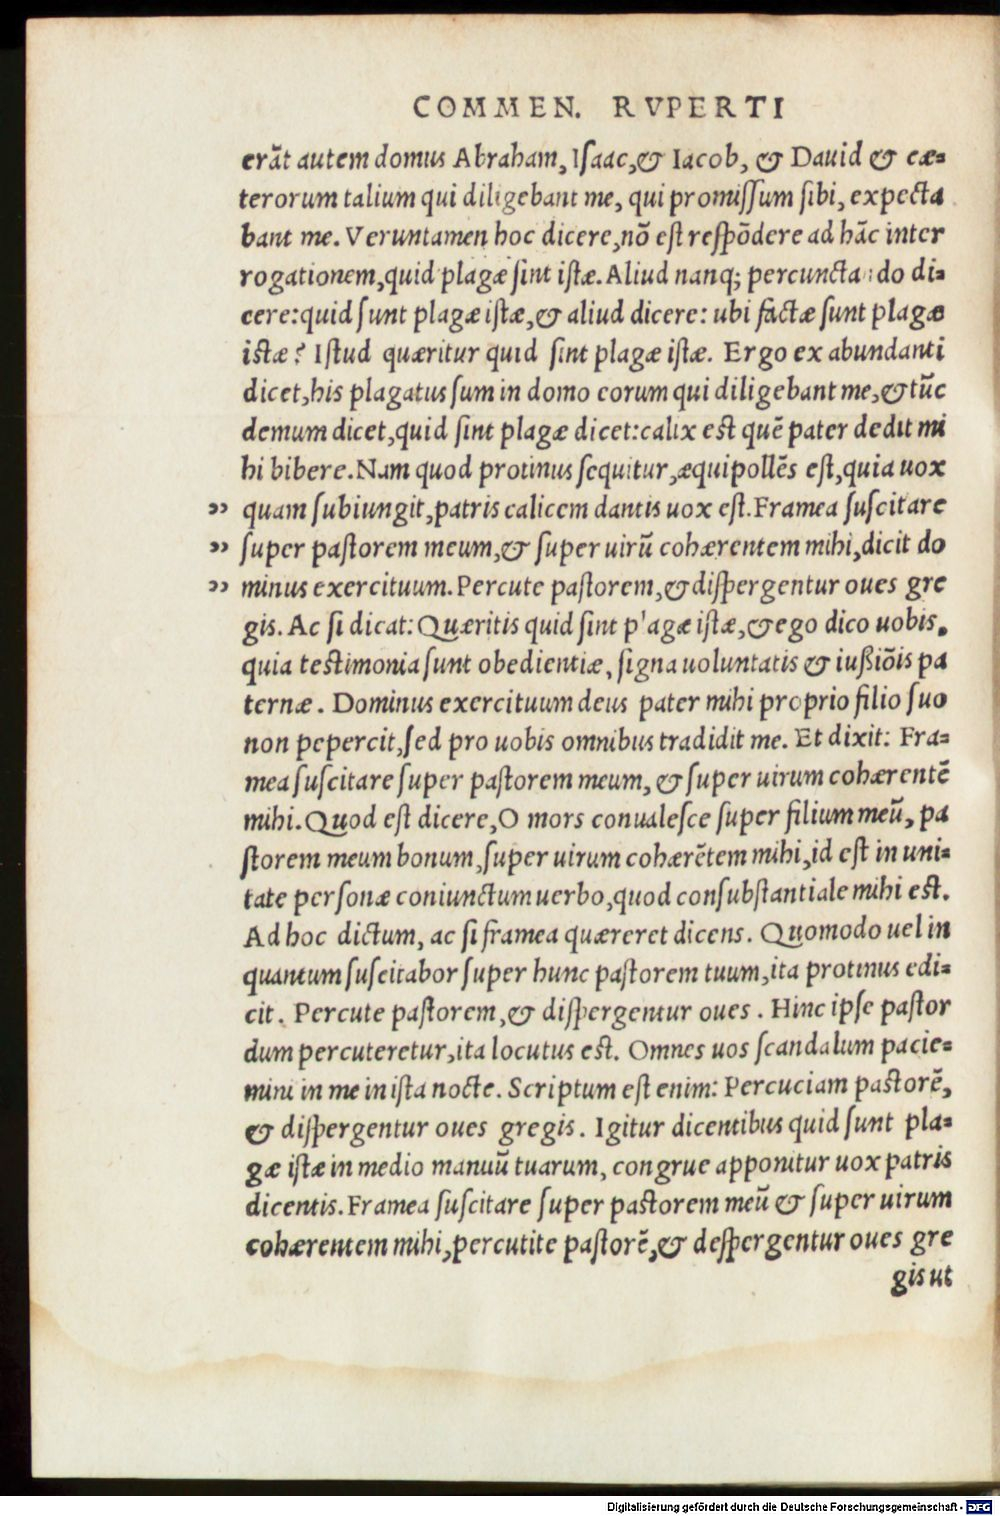 COMMEN. RVPERTI
erãt autem domus Abraham, Iſaac, & Iacob, & Dauid & cæ=
terorum talium qui diligebant me, qui promiſſum ſibi, expecta
bant me. Veruntamen hoc dicere, nõ eſt reſpõdere ad hãc inter
rogationem, quid plagæ ſint iſtæ. Aliud nanq; percuncta do di=
cere: quid ſunt plagæ iſtæ, & aliud dicere: ubi factæ ſunt plagæ
iſtæ? Iſtud quæritur quid ſint plagæ iſtæ. Ergo ex abundanti
dicet, his plagatus ſum in domo eorum qui diligebant me, & tũc
demum dicet, quid ſint plagæ dicet: calix eſt quẽ pater dedit mi
hi bibere. Nam quod protinus ſequitur, æquipollẽs eſt, quia uox
„ quam ſubiungit, patris calicem dantis uox eſt. Framea ſuſcitare
„ ſuper paſtorem meum, & ſuper uirũ cohærentem mihi, dicit do
„ minus exercituum. Percute paſtorem, & diſpergentur oues gre
gis. Ac ſi dicat: Quæritis quid ſint p'agæ iſtæ, & ego dico uobis.
quia teſtimonia ſunt obedientiæ, ſigna uoluntatis & iußiõis pa
ternæ. Dominus exercituum deus pater mihi proprio filio ſuo
non pepercit, ſed pro uobis omnibus tradidit me. Et dixit: Fra=
mea ſuſcitare ſuper paſtorem meum, & ſuper uirum cohærentẽ
mihi. Quod eſt dicere, O mors conualeſce ſuper filium meũ, pa
ſtorem meum bonum, ſuper uirum cohærẽtem mihi, id eſt in uni=
tate perſonæ coniunctum uerbo, quod conſubſtantiale mihi eſt.
Ad hoc dictum, ac ſi framea quæreret dicens. Quomodo uel in
quantum ſuſcitabor ſuper hunc paſtorem tuum, ita protinus edi=
cit. Percute paſtorem, & diſpergentur oues. Hinc ipſe paſtor
dum percuteretur, ita locutus eſt. Omnes uos ſcandalum pacie=
mini in me in iſta nocte. Scriptum eſt enim: Percuciam paſtorẽ,
& diſpergentur oues gregis. Igitur dicentibus quid ſunt pla=
gæ iſtæ in medio manuũ tuarum, congrue apponitur uox patris
dicentis. Framea ſuſcitare ſuper paſtorem meũ & ſuper uirum
cohærentem mihi, percutite paſtorẽ, & deſpergentur oues gre
gis ut
Digitalisierung gefördert durch die Deutsche Forschungsgemeinschaft - DFG